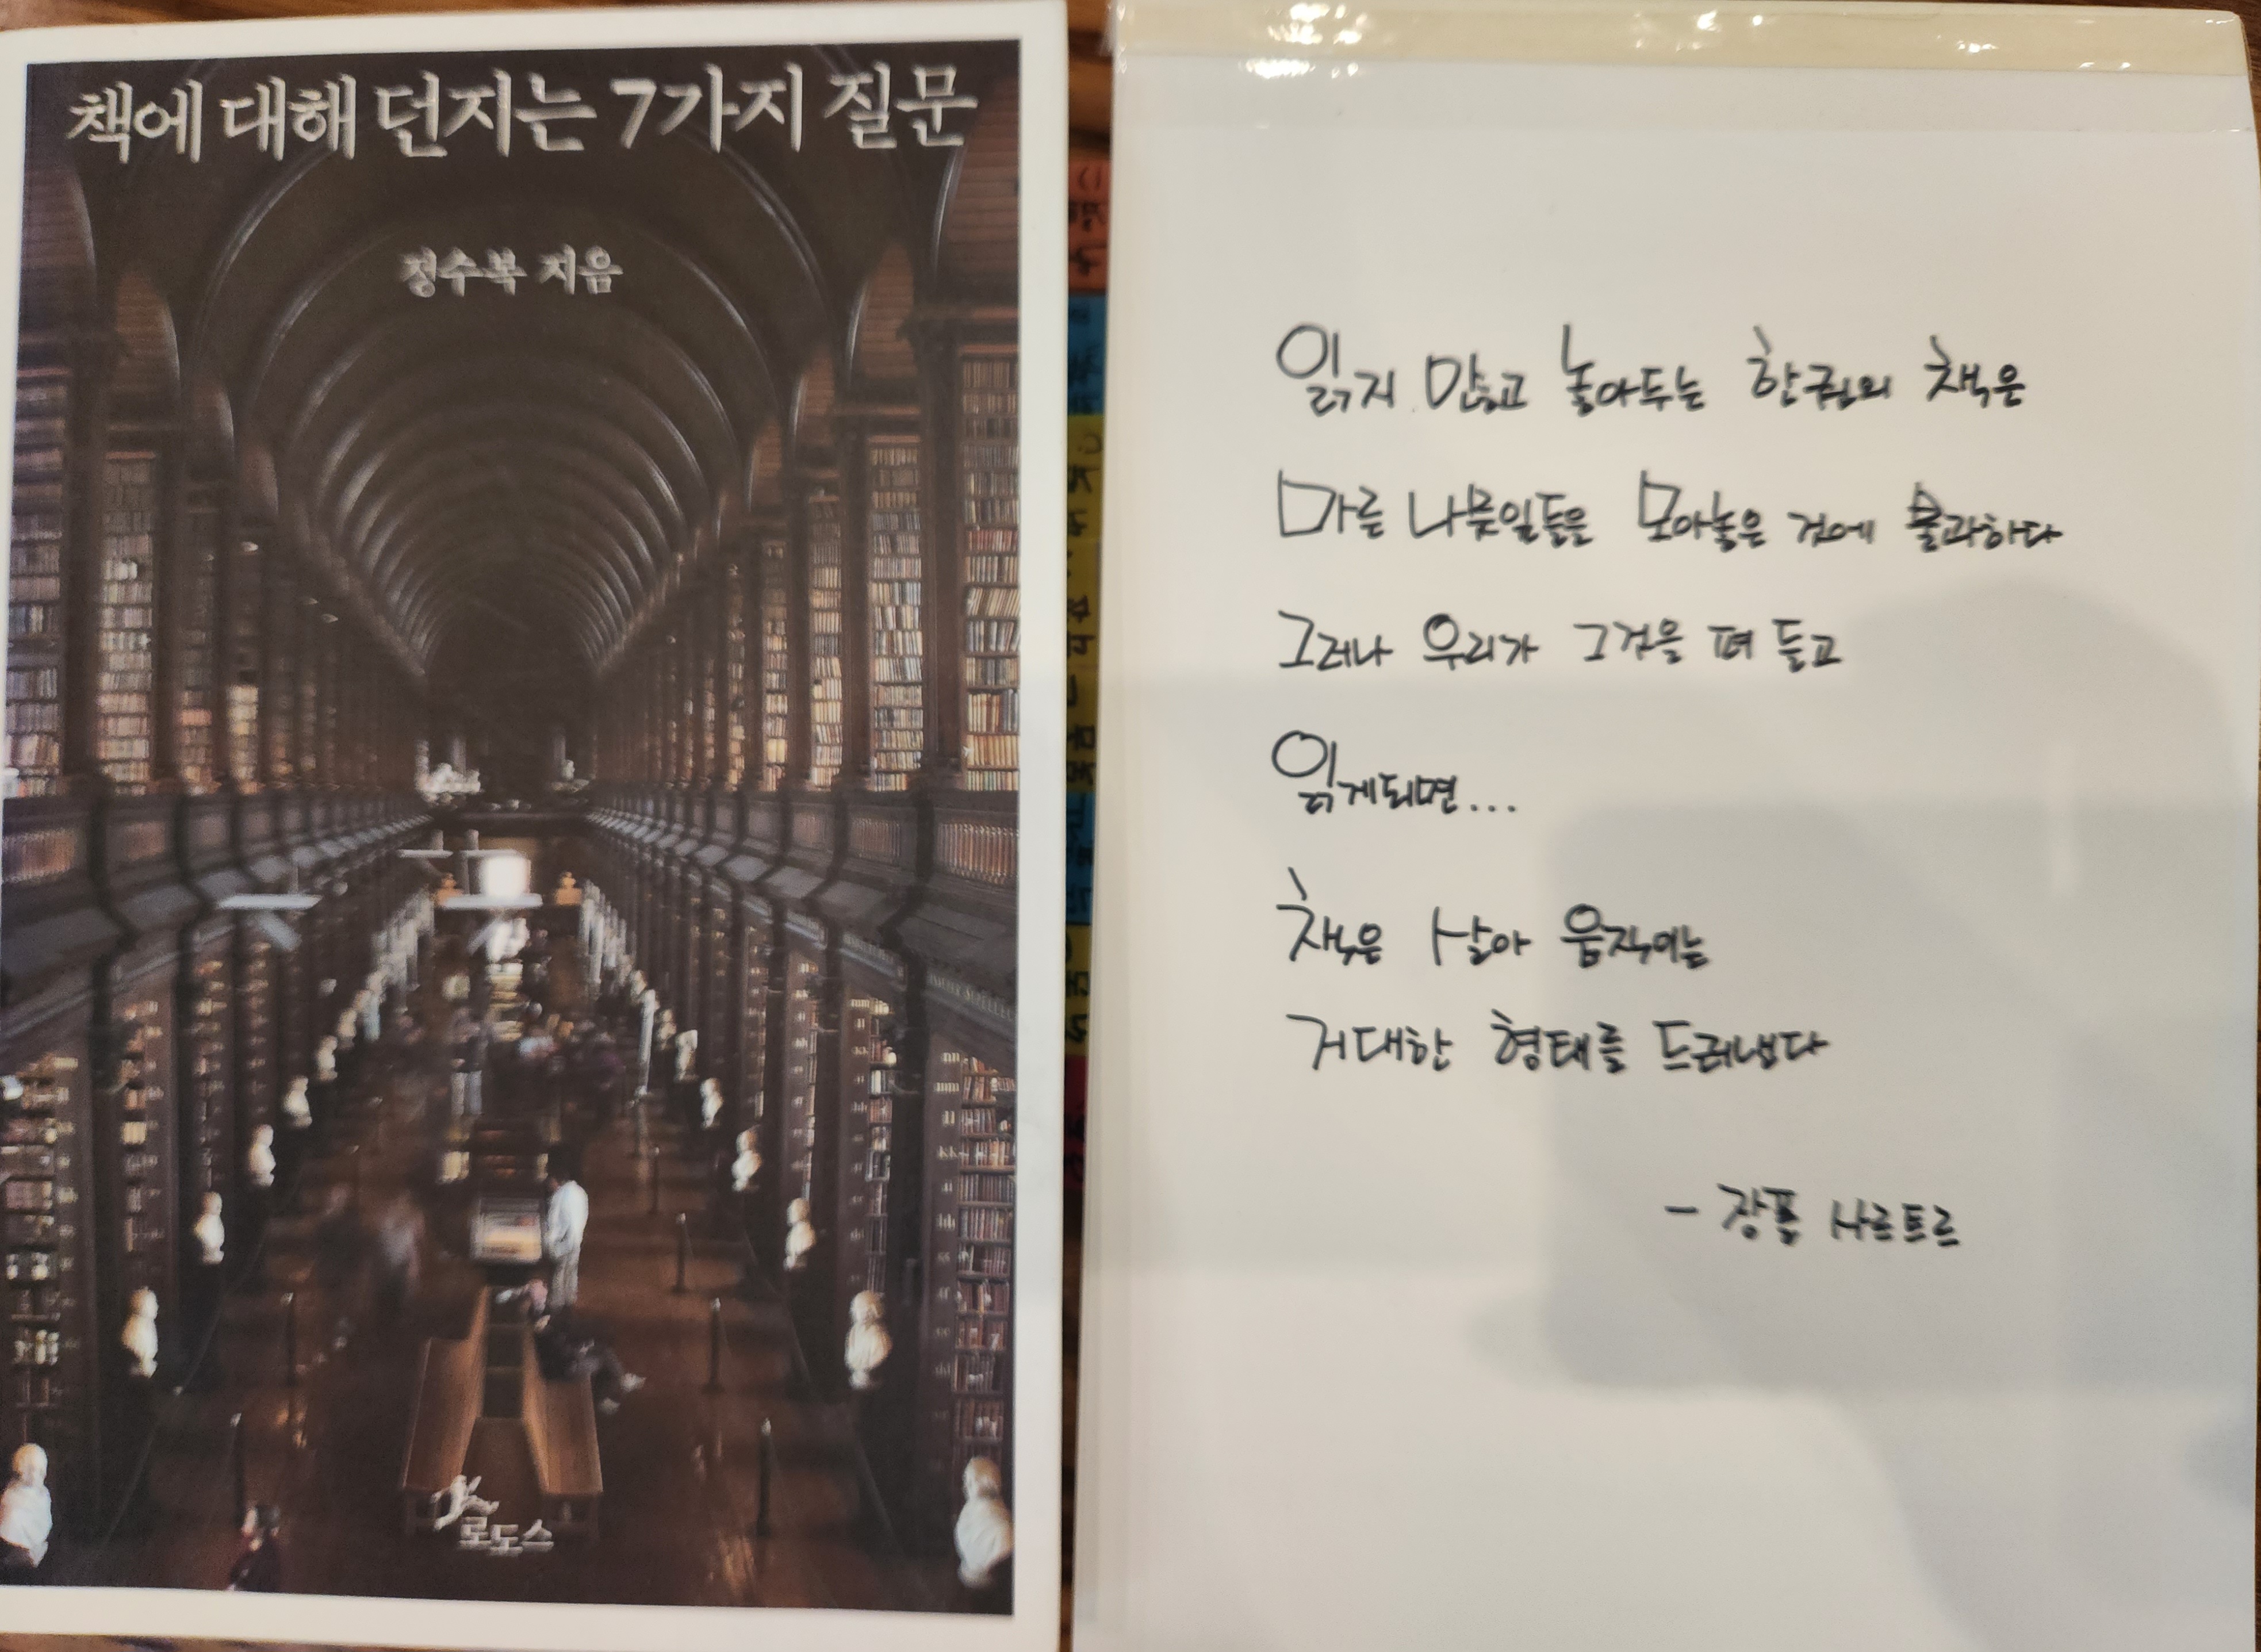 책에 대해 던지는 7가지 질문
정수복 지음
로도스
읽지 않고 놓아두는 한권의 책은
마른 나뭇잎들을 모아놓은 것에 불과하다
그러나 우리가 그것을 펴 들고
읽게되면...
책은 살아 움직이는
거대한 형태를 드러낸다
- 장폴 사르트르